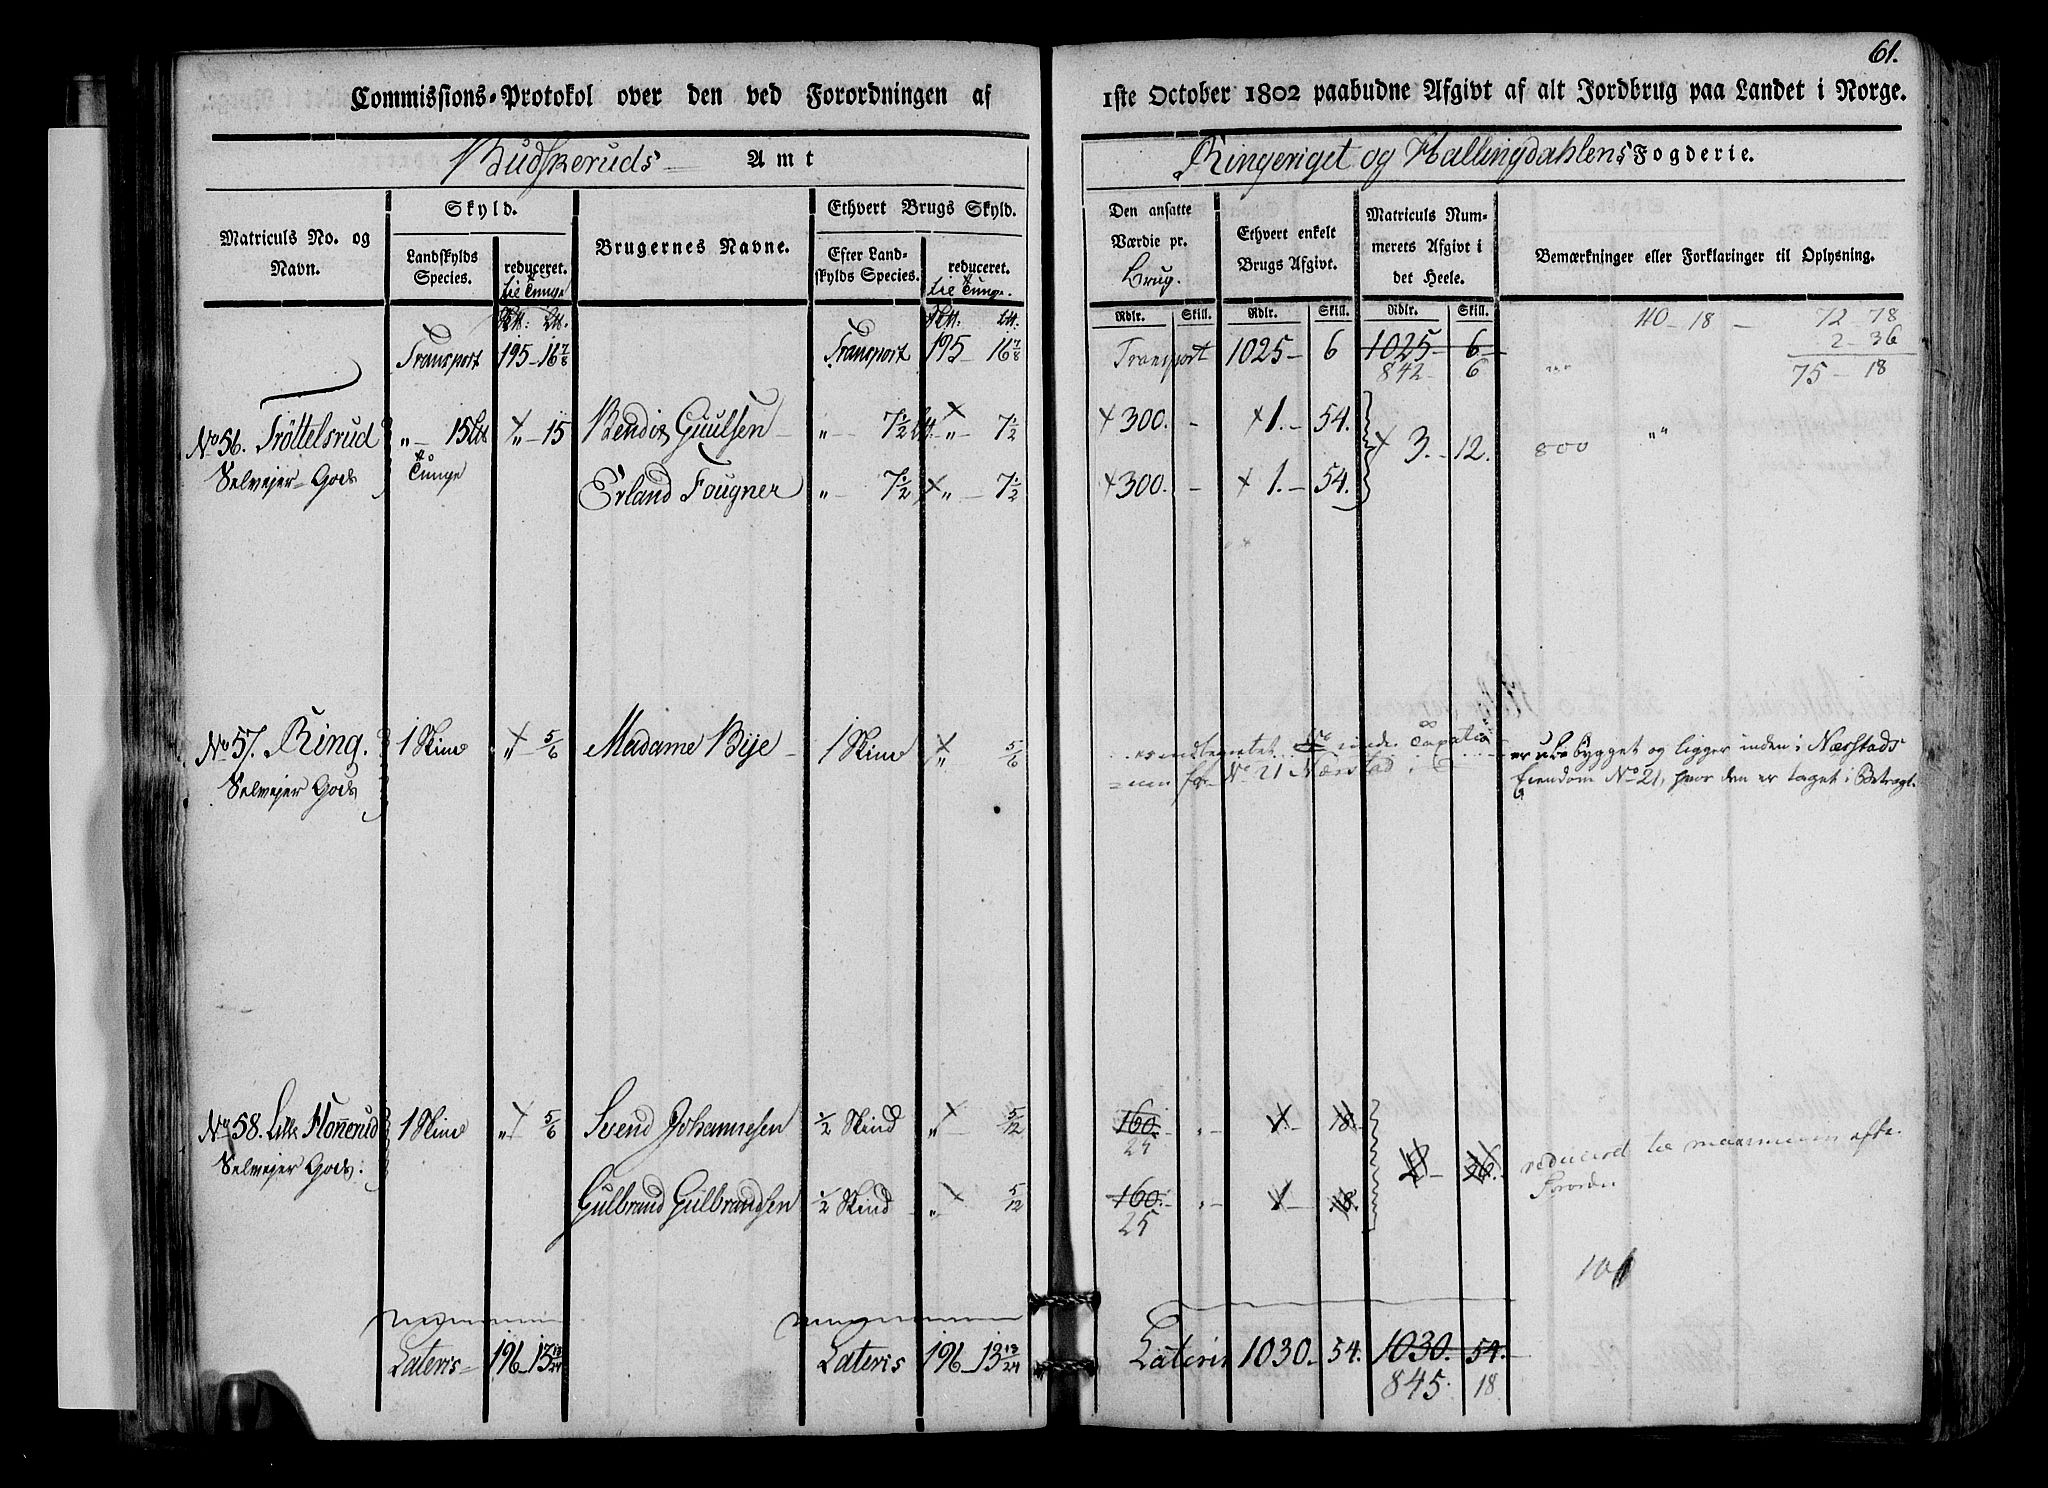 61.
Commissions-Protokol over den ved Forordningen af 1ste October 1802 paabudne Afgivt af alt Jordbrug paa Landet i Norge.
Budskeruds Amt
Ringeriget og Hallingdahlens Fogderie.
Matriculs No. og Navn.
Skyld.
Landskylds Species.
reduceret.
til Tunge
Brugernes Navne.
Ethvert Brugs Skyld.
Efter Landskylds Species.
reduceret.
til Tunge.
Den ansatte Værdie pr. Brug.
Ethvert enkelte Brugs Afgivt.
Matriculs Nummerets Afgivt i det Heele.
Bemærkninger eller Forklaringer til Oplysning.
Rdlr. Skill. Rdlr. Skill. Rdlr. Skill.
40 - 18 - 72 - 78
2 - 36
75 - 18
Transport 195 - 16 7/8 Transport 195 - 16 7/8 Transport 1025 - 6 1025 - 6
842 - 6
No 56. Tröttelsrud „ - 15 „ - 15 Bendix Guulsen „ - 7 1/2 „ - 7 1/2 300. - 1. - 54.
Selvejer-Gods Tunge
3. - 12. 800
Erland Fougner „ - 7 1/2 „ - 7 1/2 300. - 1. - 54.
No 57. Ring. 1 Skind „ 5/6 Madame Bye 1 Skind „ 5/6
Selvejer Gods
No 21 Nærstad
er ubebygget og ligger inden i Nærstads
Eiendom No 21, hvor den er taget i Betragt.
No 58. Lille Hönerud 1 Skind „ 5/6 Svend Johannesen 1/2 Skind „ 5/12 160. „ - 1. - 18.
25
Selvejer Gods:
reduceret til
Gulbrand Gulbrandsen 1/2 Skind „ 5/12 160. „ - 1. - 18.
25
Lateris 196 - 13 13/24 Lateris 196 - 13 13/24 Lateris 1030. - 54. 1030. 54.
845. 18